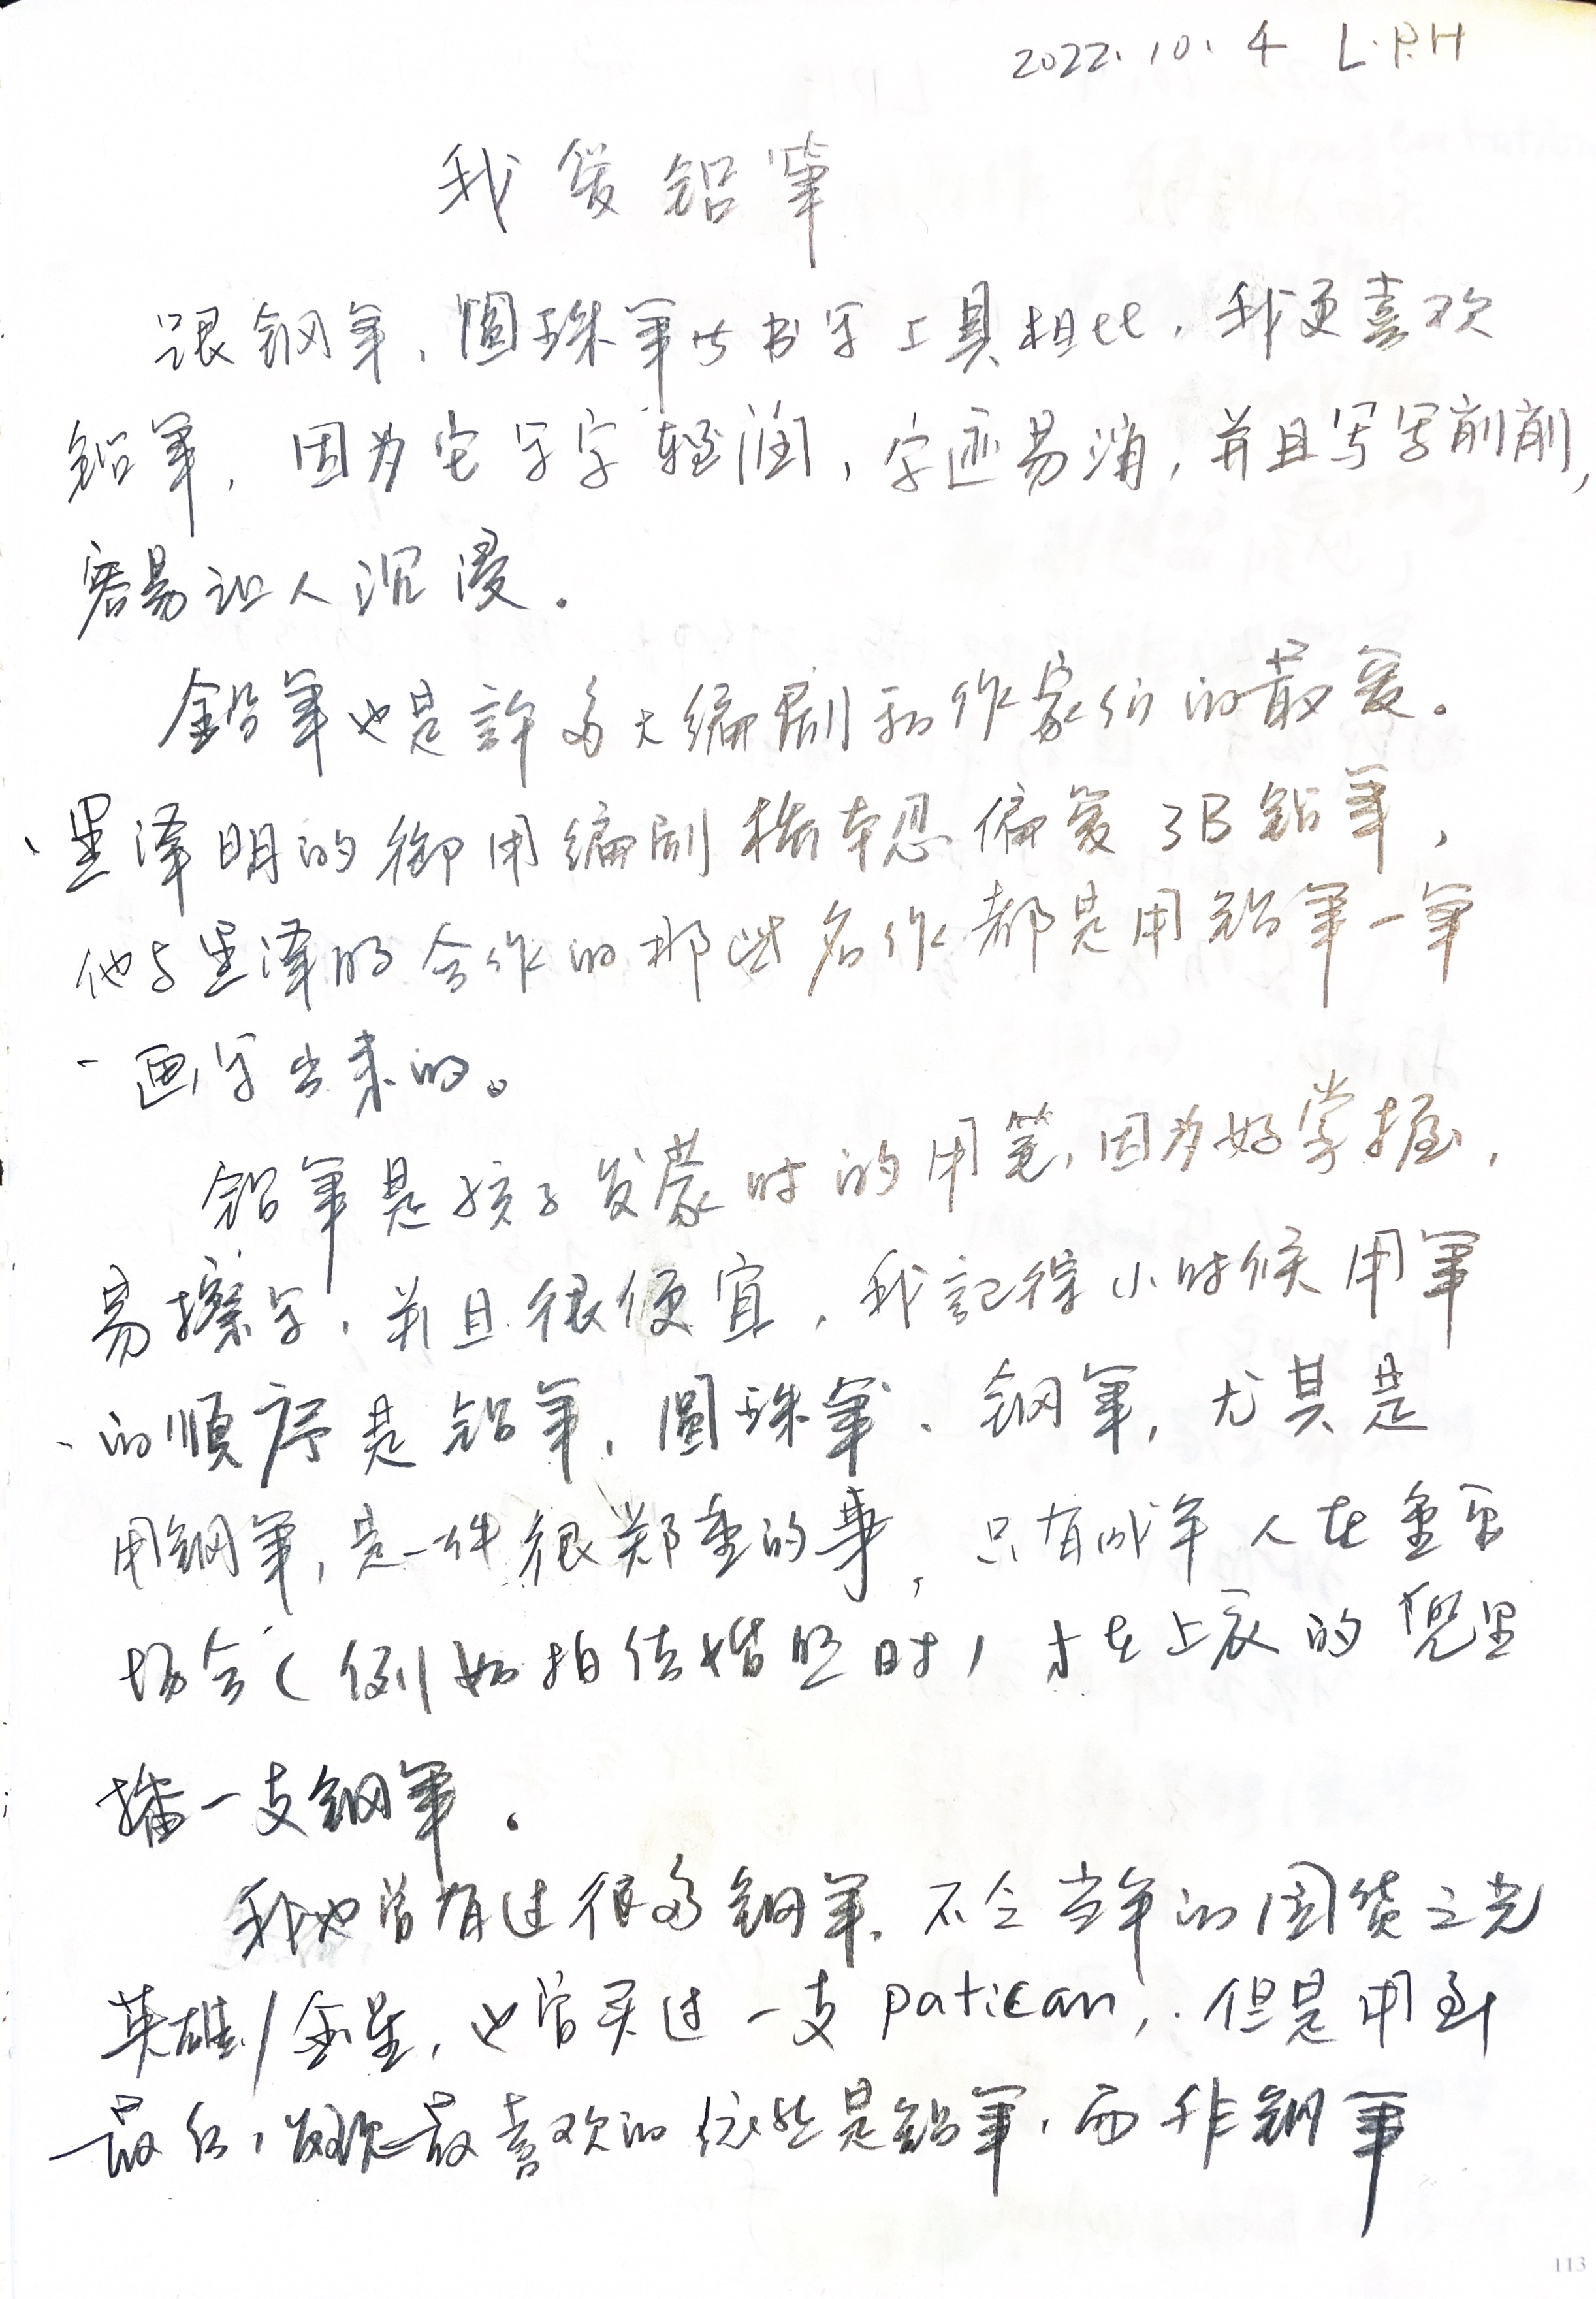 2022.10.4 L.P.H
我爱铅筆
跟钢筆、圆珠筆等书写工具相比，我更喜欢
铅筆，因为它写字轻润，字迹易消，并且写写削削，
容易让人沉浸。
鉛筆也是許多大编剧和作家们的最爱。
黑泽明的御用编剧橋本忍偏爱3B铅筆，
他与黑泽明合作的那些名作都是用铅筆一筆
一画写出来的。
铅筆是孩子发蒙时的用笔，因为好掌握，
易擦写，并且很便宜，我記得小时候用筆
的顺序是铅筆、圆珠筆、钢筆，尤其是
用钢筆，是一件很郑重的事，只有成年人在重要
场合（例如拍结婚照时）才在上衣的兜里
插一支钢筆。
我也曾有过很多钢筆，不仅当年的国货之光
英雄/金星，也曾买过一支patican，但是用到
最后，发现最喜欢的依然是铅筆，而非钢筆
113